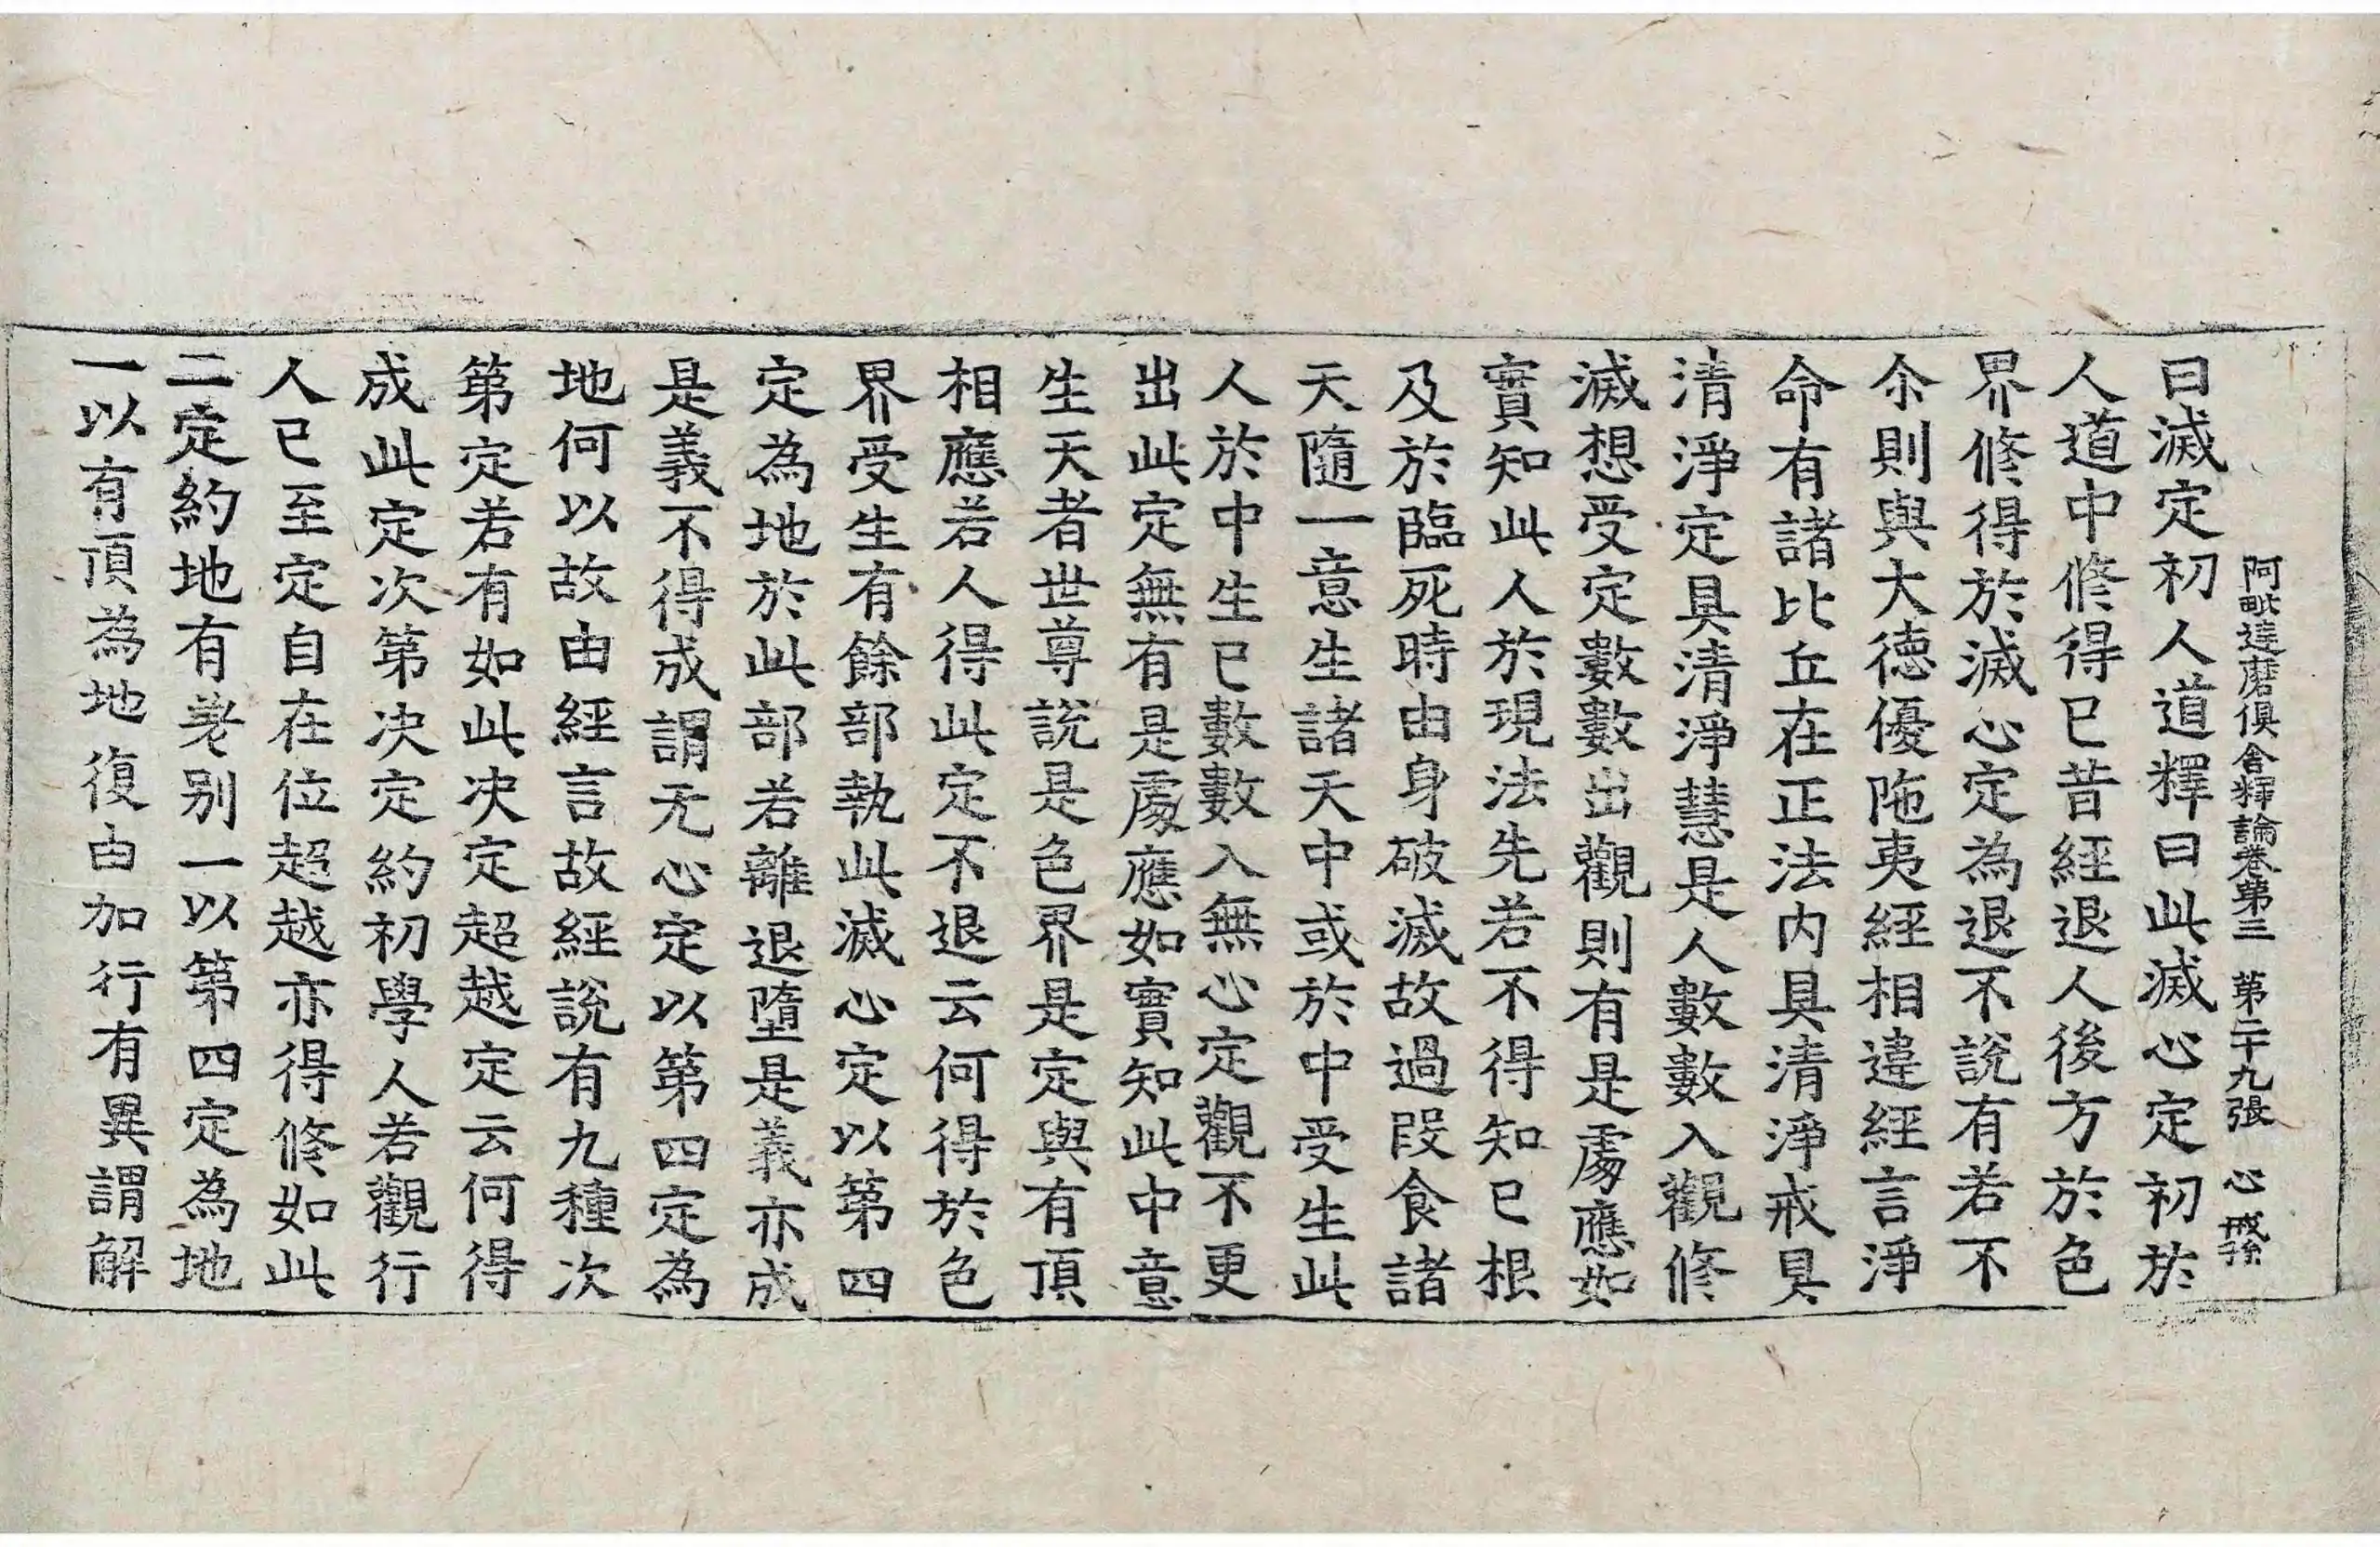 阿毗達磨俱舍釋論卷第三 第二十九張 心 戒孫
曰滅定初人道釋曰此滅心定初於
人道中修得已昔經退人後方於色
界修得於滅心定為退不說有若不
尒則與大德優陁夷經相違經言淨
命有諸比丘在正法内具清淨戒具
清淨定具清淨慧是人數數入觀修
滅想受定數數出觀則有是處應如
實知此人於現法先若不得知已根
及於臨死時由身破滅故過段食諸
天隨一意生諸天中或於中受生此
人於中生已數數入無心定觀不更
出此定無有是處應如實知此中意
生天者世尊說是色界是定與有頂
相應若人得此定不退云何得於色
界受生有餘部執此滅心定以第四
定為地於此部若離退墮是義亦成
是義不得成謂无心定以第四定為
地何以故由經言故經說有九種次
第定若有如此决定超越定云何得
成此定次第决定約初學人若觀行
人已至定自在位超越亦得修如此
二定約地有差别一以第四定為地
一以有頂為地復由加行有異謂解